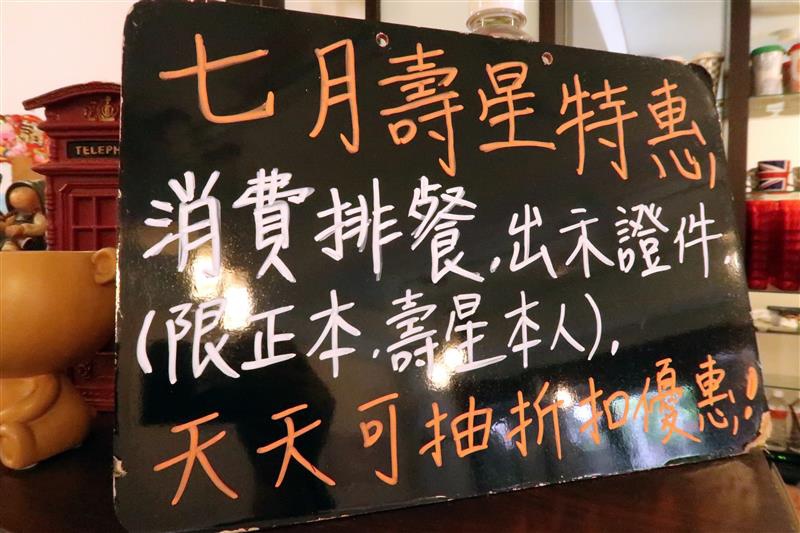 TELEPH
七月壽星特惠,
消費排餐,出示證件,
(限正本,壽星本人),
天天可抽折扣優惠!